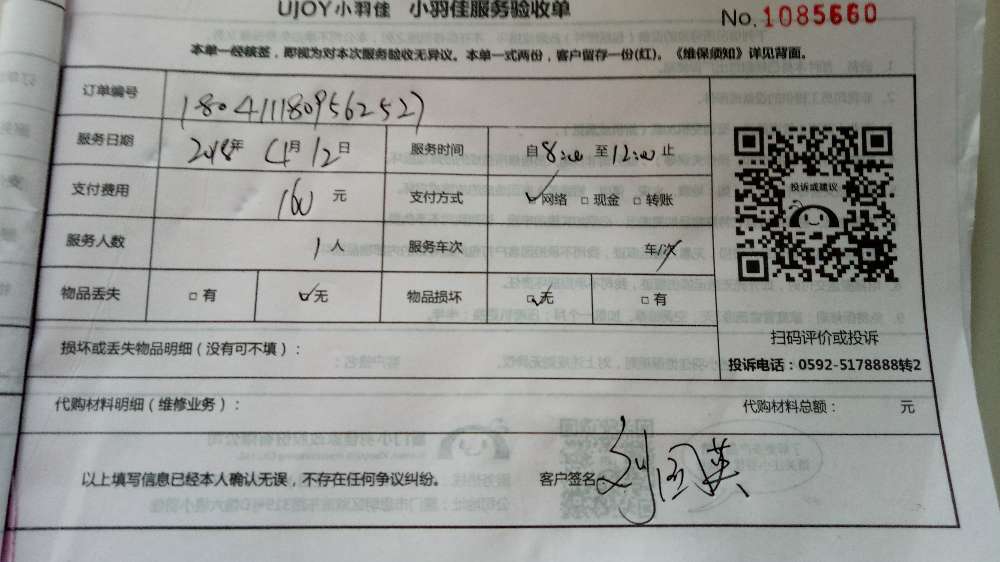 UJOY小羽佳 小羽佳服务验收单
No.1085660
本单一经核签，即视为对本次服务验收无异议。本单一式两份，客户留存一份(红)。《维保须知》详见背面。
订单编号 1804111809562527
服务日期 2018年 4月12日 服务时间 自8:00至12:00止
支付费用 160 元 支付方式 ☑网络 □现金 □转账
服务人数 1人 服务车次 车/次
物品丢失 □有 ☑无 物品损坏 ☑无 □有
投诉或建议
扫码评价或投诉
投诉电话：0592-5178888转2
损坏或丢失物品明细（没有可不填）：
代购材料明细（维修业务）： 代购材料总额： 元
以上填写信息已经本人确认无误，不存在任何争议纠纷。 客户签名 刘国英